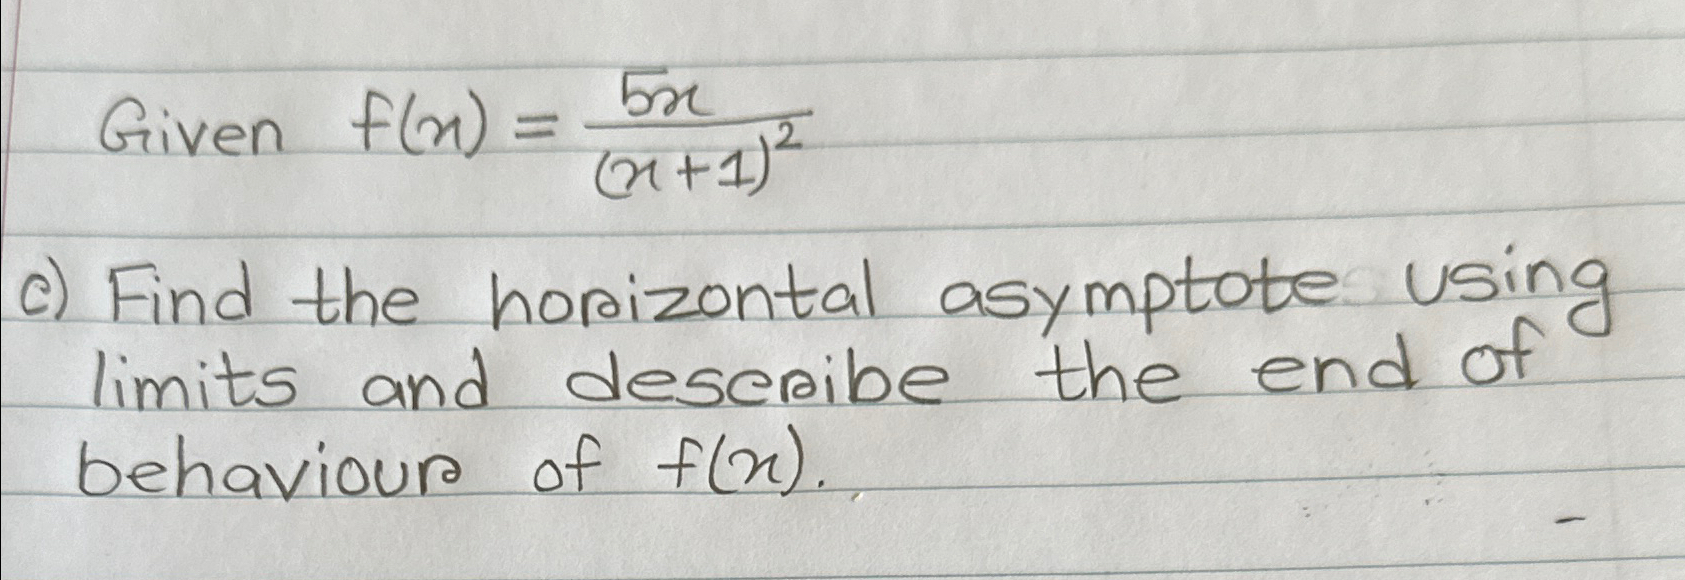 Given f(x) = 5x/(x+1)²
c) Find the horizontal asymptote using
limits and describe the end of
behaviour of f(x).